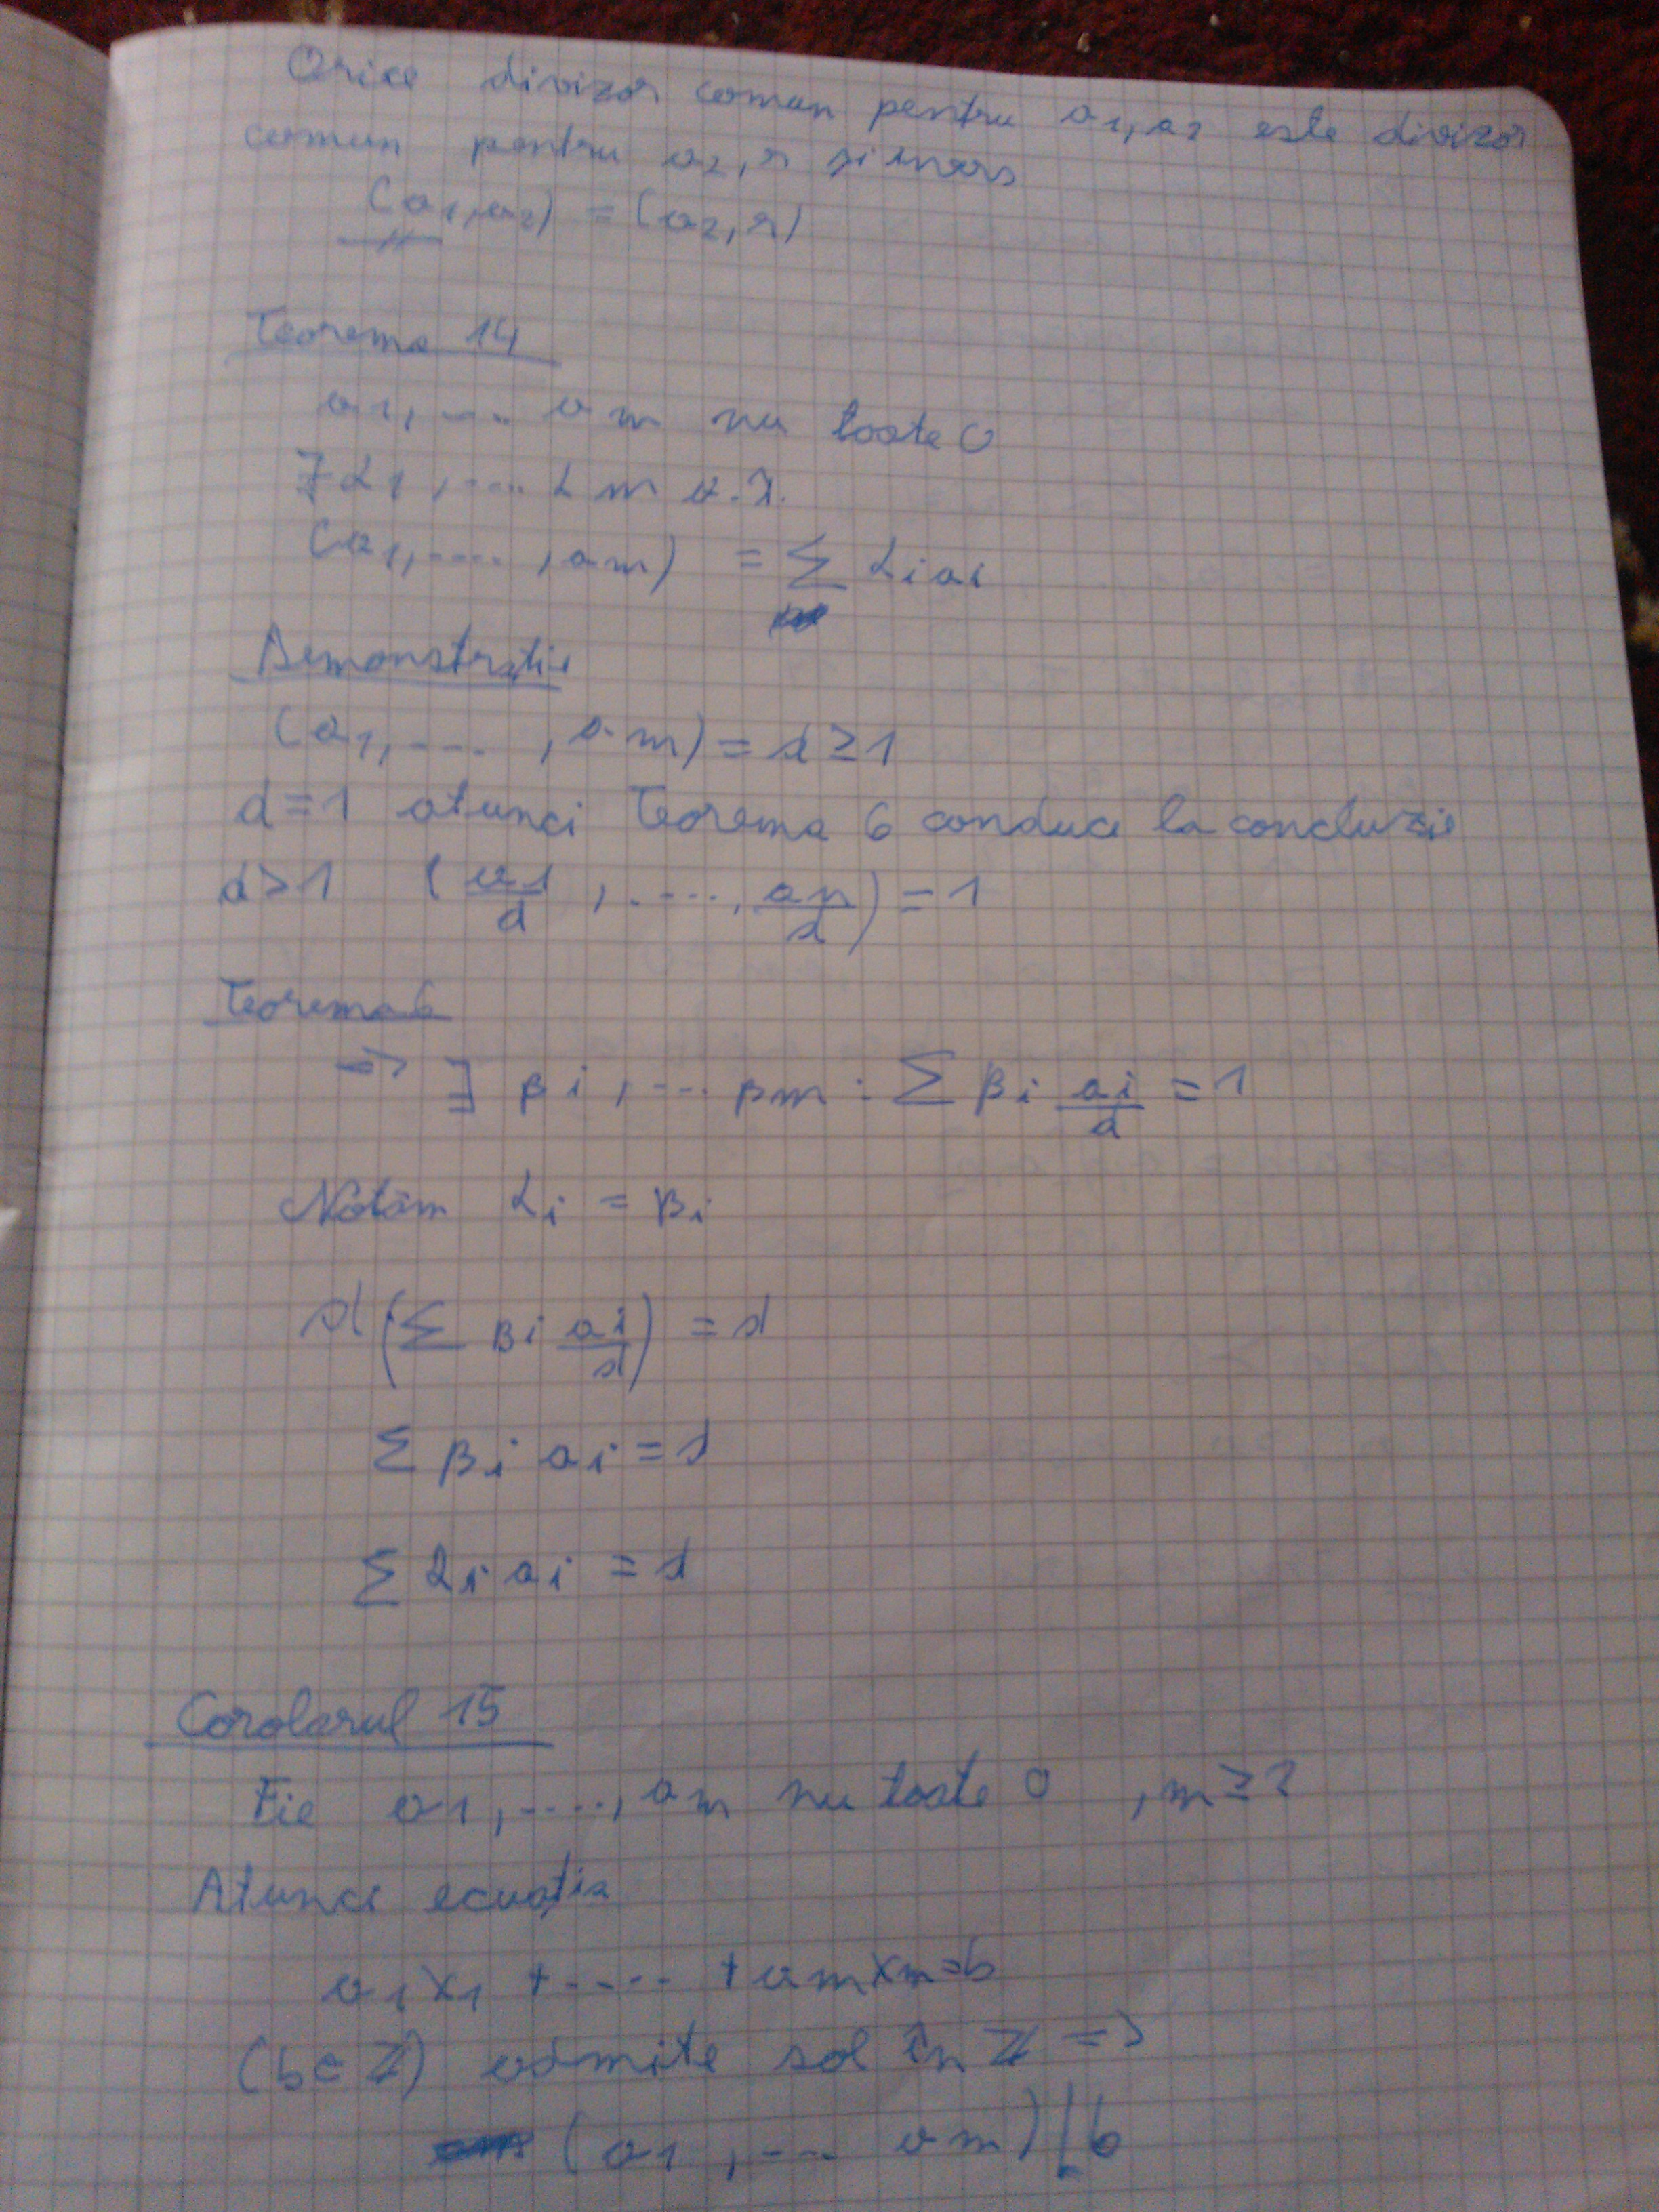 Orice divizor comun pentru a1, a2 este divizor
comun pentru a2, r și invers
(a1, a2) = (a2, r)
Teorema 14
a1, .... am nu toate 0
∃ α1, .... αm a.î.
(a1, ...., am) = Σ αi ai
Demonstrație
(a1, ...., am) = d ≥ 1
d = 1 atunci Teorema 6 conduce la concluzie
d > 1 (a1/d, ...., an/d) = 1
Teorema 6
=> ∃ βi, ... βm : Σ βi ai/d = 1
Notăm αi = βi
d(Σ βi ai/d) = d
Σ βi ai = d
Σ αi ai = d
Corolarul 15
Fie a1, ...., am nu toate 0 , m ≥ 2
Atunci ecuația
a1x1 + .... + amxm = b
(b ∈ Z) admite sol în Z =>
(a1, .... am) | b